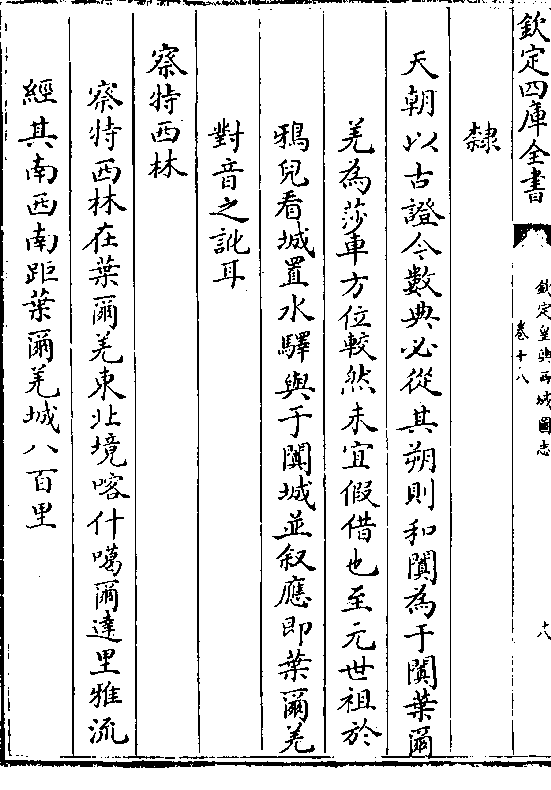 欽定四庫全書
欽定皇輿西域圖志
卷十八
十八
隸
天朝以古證今數典必從其朔則和闐為于闐葉爾
羌為莎車方位較然未宜假借也至元世祖於
鴉兒看城置水驛與于闐城並叙應即葉爾羌
對音之訛耳
察特西林
察特西林在葉爾羌東北境喀什噶爾達里雅流
經其南西南距葉爾羌城八百里